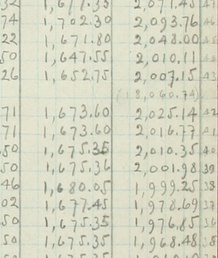 1,702.30 2,093.76
22 1,671.80 2,048.00
50 1,647.55 2,010.11
26 1,652.75 2,007.15 43
(18,060.74)
71 1,673.60 2,025.14 42
71 1,673.60 2,016.77 41
50 1,675.35 2,010.35 40
50 1,675.36 2,001.98 39
46 1,680.05 1,999.25 38
02 1,677.45 1,978.69 37
50 1,675.35 1,976.85 36
50 1,675.35 1,968.48 35
1,675.35